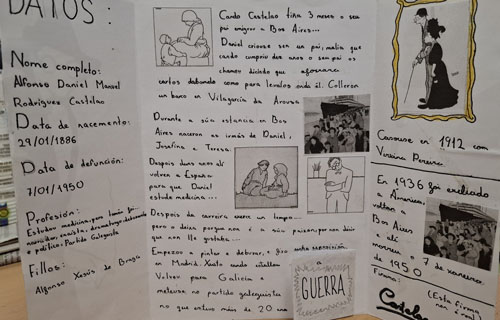 DATOS:
Nome completo:
Alfonso Daniel Manuel
Rodríguez Castelao
Data de nacemento:
29/01/1886
Data de defunción:
7/01/1950
Profesión:
Estudou medicina, pero
político. Partido Galeguista
Fillos:
Alfonso Xesús de Braga
Cando Castelao tiña 3 meses o seu
pai emigrou a Bos Aires...
Daniel criouse sen un pai, malia que
cando cumpriu dez anos o seu pai os
chamou dicindo que
cartos dabondo como para levalos onda él. Colleron
un barco en Vilagarcía de Arousa
Durante a súa estancia en Bos
Aires naceron as irmás de Daniel,
Josefina e Teresa
Despois duns anos alí
volven a España
para que Daniel
estude medicina...
Despois da carreira exerce un tempo...
pero o deixa porque non é a súa paixón, por non dicir
que non lle gustaba...
Empezou a pintar e debuxar, e fixo unha exposición
a Madrid. Xusto cando
Volveu para Galicia e
meteuse no partido galeguista
no que estivo máis de 20 anos
A
GUERRA
Casouse en 1912 con
Virxinia Pereira.
En 1936 foi exiliado
a América,
voltou a
Bos Aires
e alí
morreu o 7 de xaneiro
de 1950
Firma:
(Esta firma
non é real)
Castelao